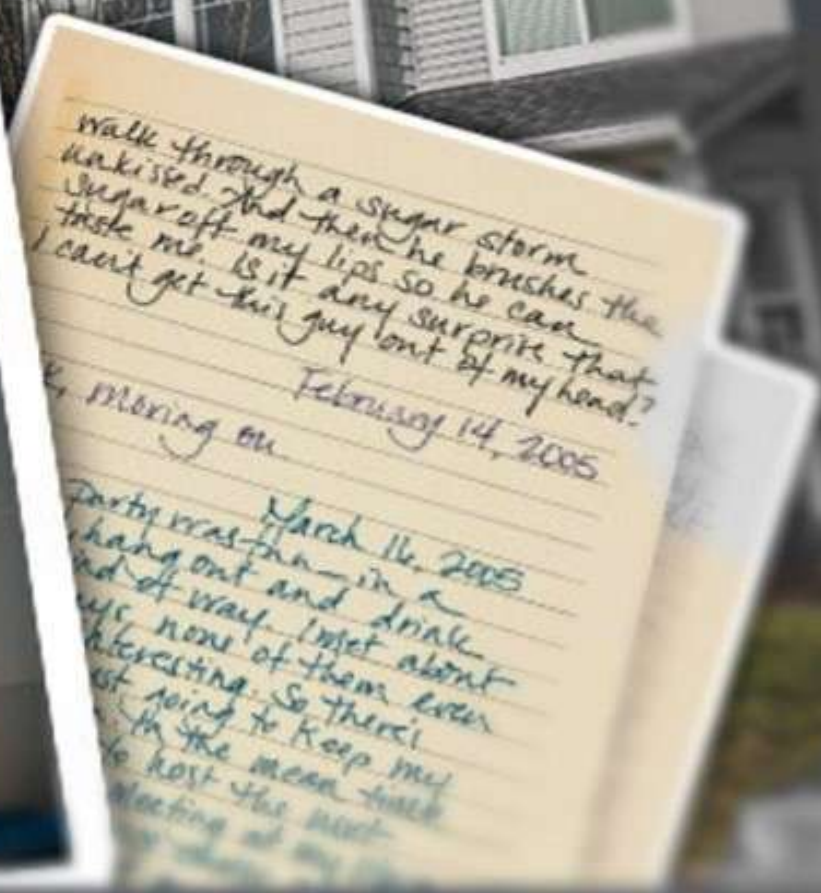 walk through a sugar storm
unkissed. And then he brushes the
sugar off my lips so he can
taste me. Is it any surprise that
I can't get this guy out of my head?
February 14, 2005
moving on
March 16, 2005
party was fun in a
hang out and drink
of way. I met about
none of them even
interesting. So there's
going to keep my
the mean time
host the next
meeting at my